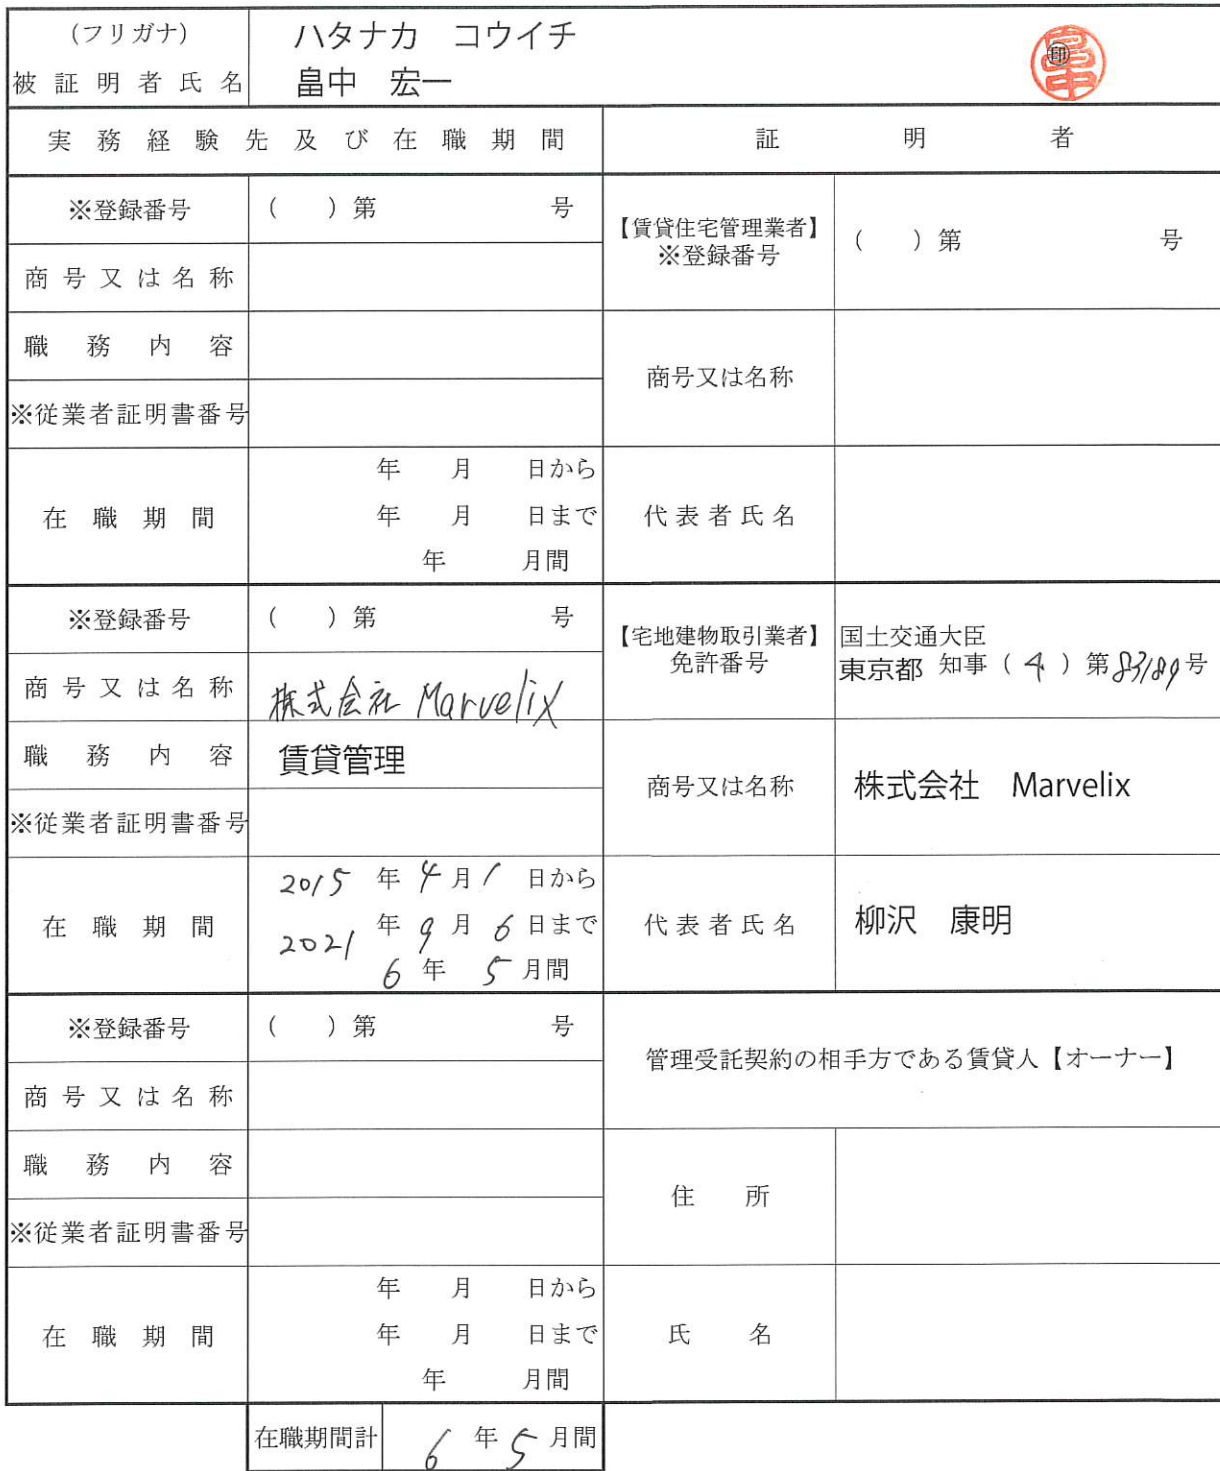 (フリガナ) ハタナカ コウイチ
被証明者氏名 畠中 宏一 ㊞ 畠中
実務経験先及び在職期間 証明者
※登録番号 ( )第 号
商号又は名称
職務内容
※従業者証明書番号
在職期間 年 月 日から
年 月 日まで
年 月間
【賃貸住宅管理業者】
※登録番号 ( )第 号
商号又は名称
代表者氏名
※登録番号 ( )第 号
商号又は名称 株式会社 Marvelix
職務内容 賃貸管理
※従業者証明書番号
在職期間 2015 年 4 月 1 日から
2021 年 9 月 6 日まで
6 年 5 月間
【宅地建物取引業者】
免許番号
国土交通大臣
東京都 知事 ( 4 ) 第 83189 号
商号又は名称 株式会社 Marvelix
代表者氏名 柳沢 康明
※登録番号 ( )第 号
商号又は名称
職務内容
※従業者証明書番号
在職期間 年 月 日から
年 月 日まで
年 月間
管理受託契約の相手方である賃貸人【オーナー】
住所
氏名
在職期間計 6 年 5 月間